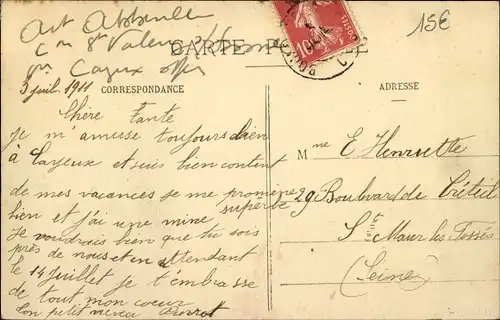 Art Abbeville
Con St Valery s/ Somme
15€
CARTE
Cayeux s/mer
3 juil. 1911
CORRESPONDANCE
ADRESSE
Chère Tante
Je m'amuse toujours bien
à Cayeux et suis bien content
de mes vacances je me promène
bien et j'ai une mine superbe
Je voudrais bien que tu sois
près de nous et en attendant
le 14 Juillet je t'embrasse
de tout mon coeur
Ton petit neveu
Mme E Henriette
29 Boulevard de Créteil
St Maur les Fossés
(Seine)